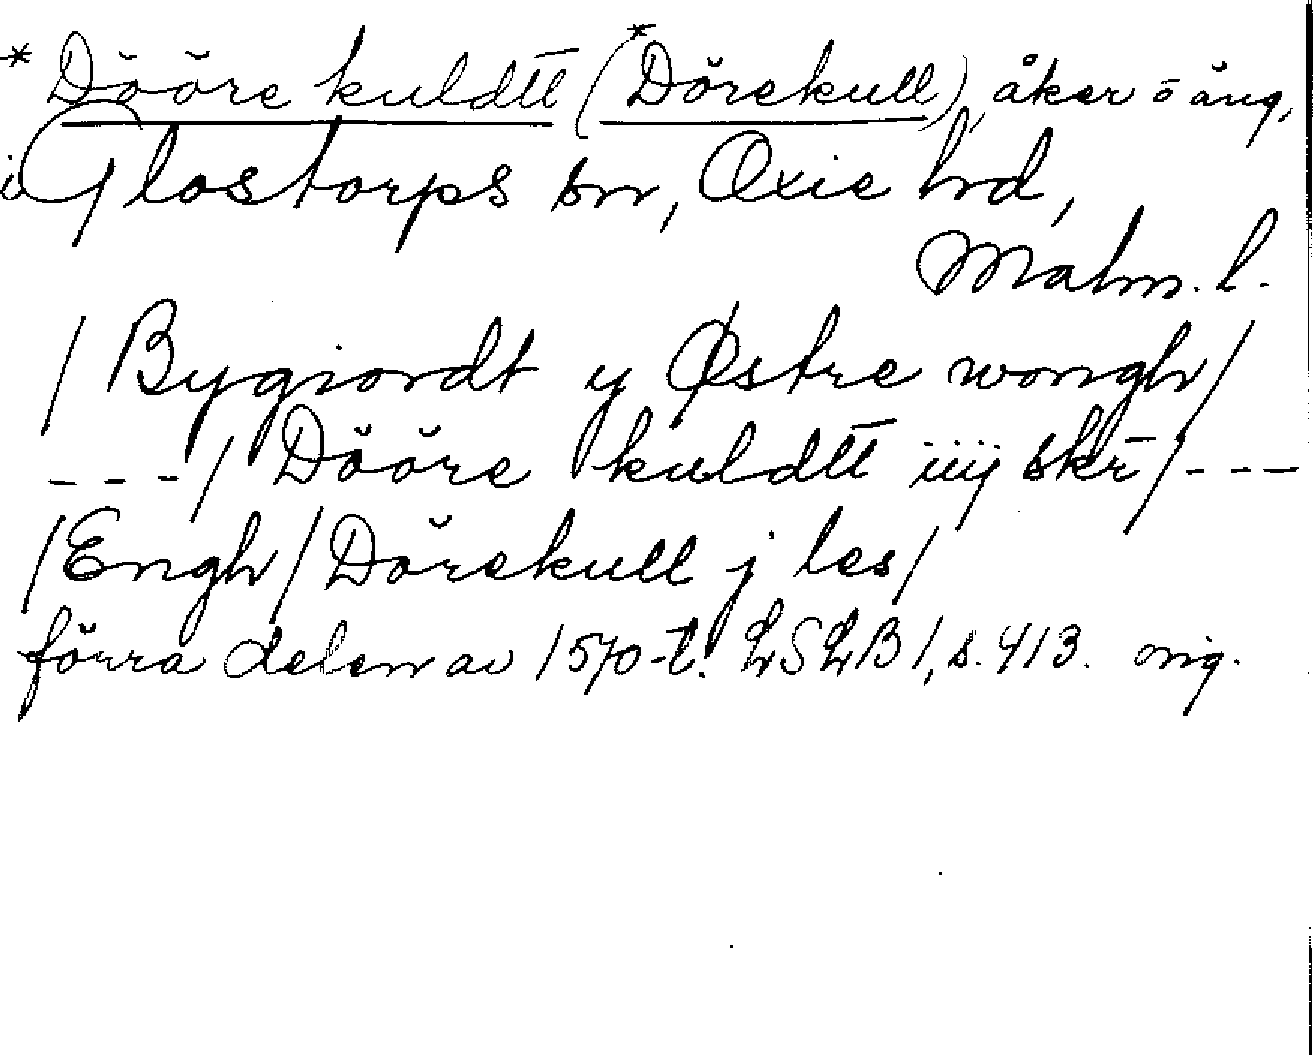 * Dŏŏre kuldtt̄ (*Dŏrekull), åker ō äng,
i Glostorps sn, Oxie hd,
Malm. l.
/ Bygiordt y Østre wongh /
- - - / Dŏŏre kuldtt̄ iiij skr̄ / - - -
/ Engh / Dŏrekull j les /
förra delen av 1570-t. LSLB 1, s. 413. orig.